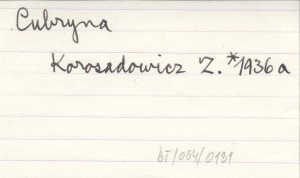 Cubryna
Korosadowicz Z. *1936a
bT/054/0131